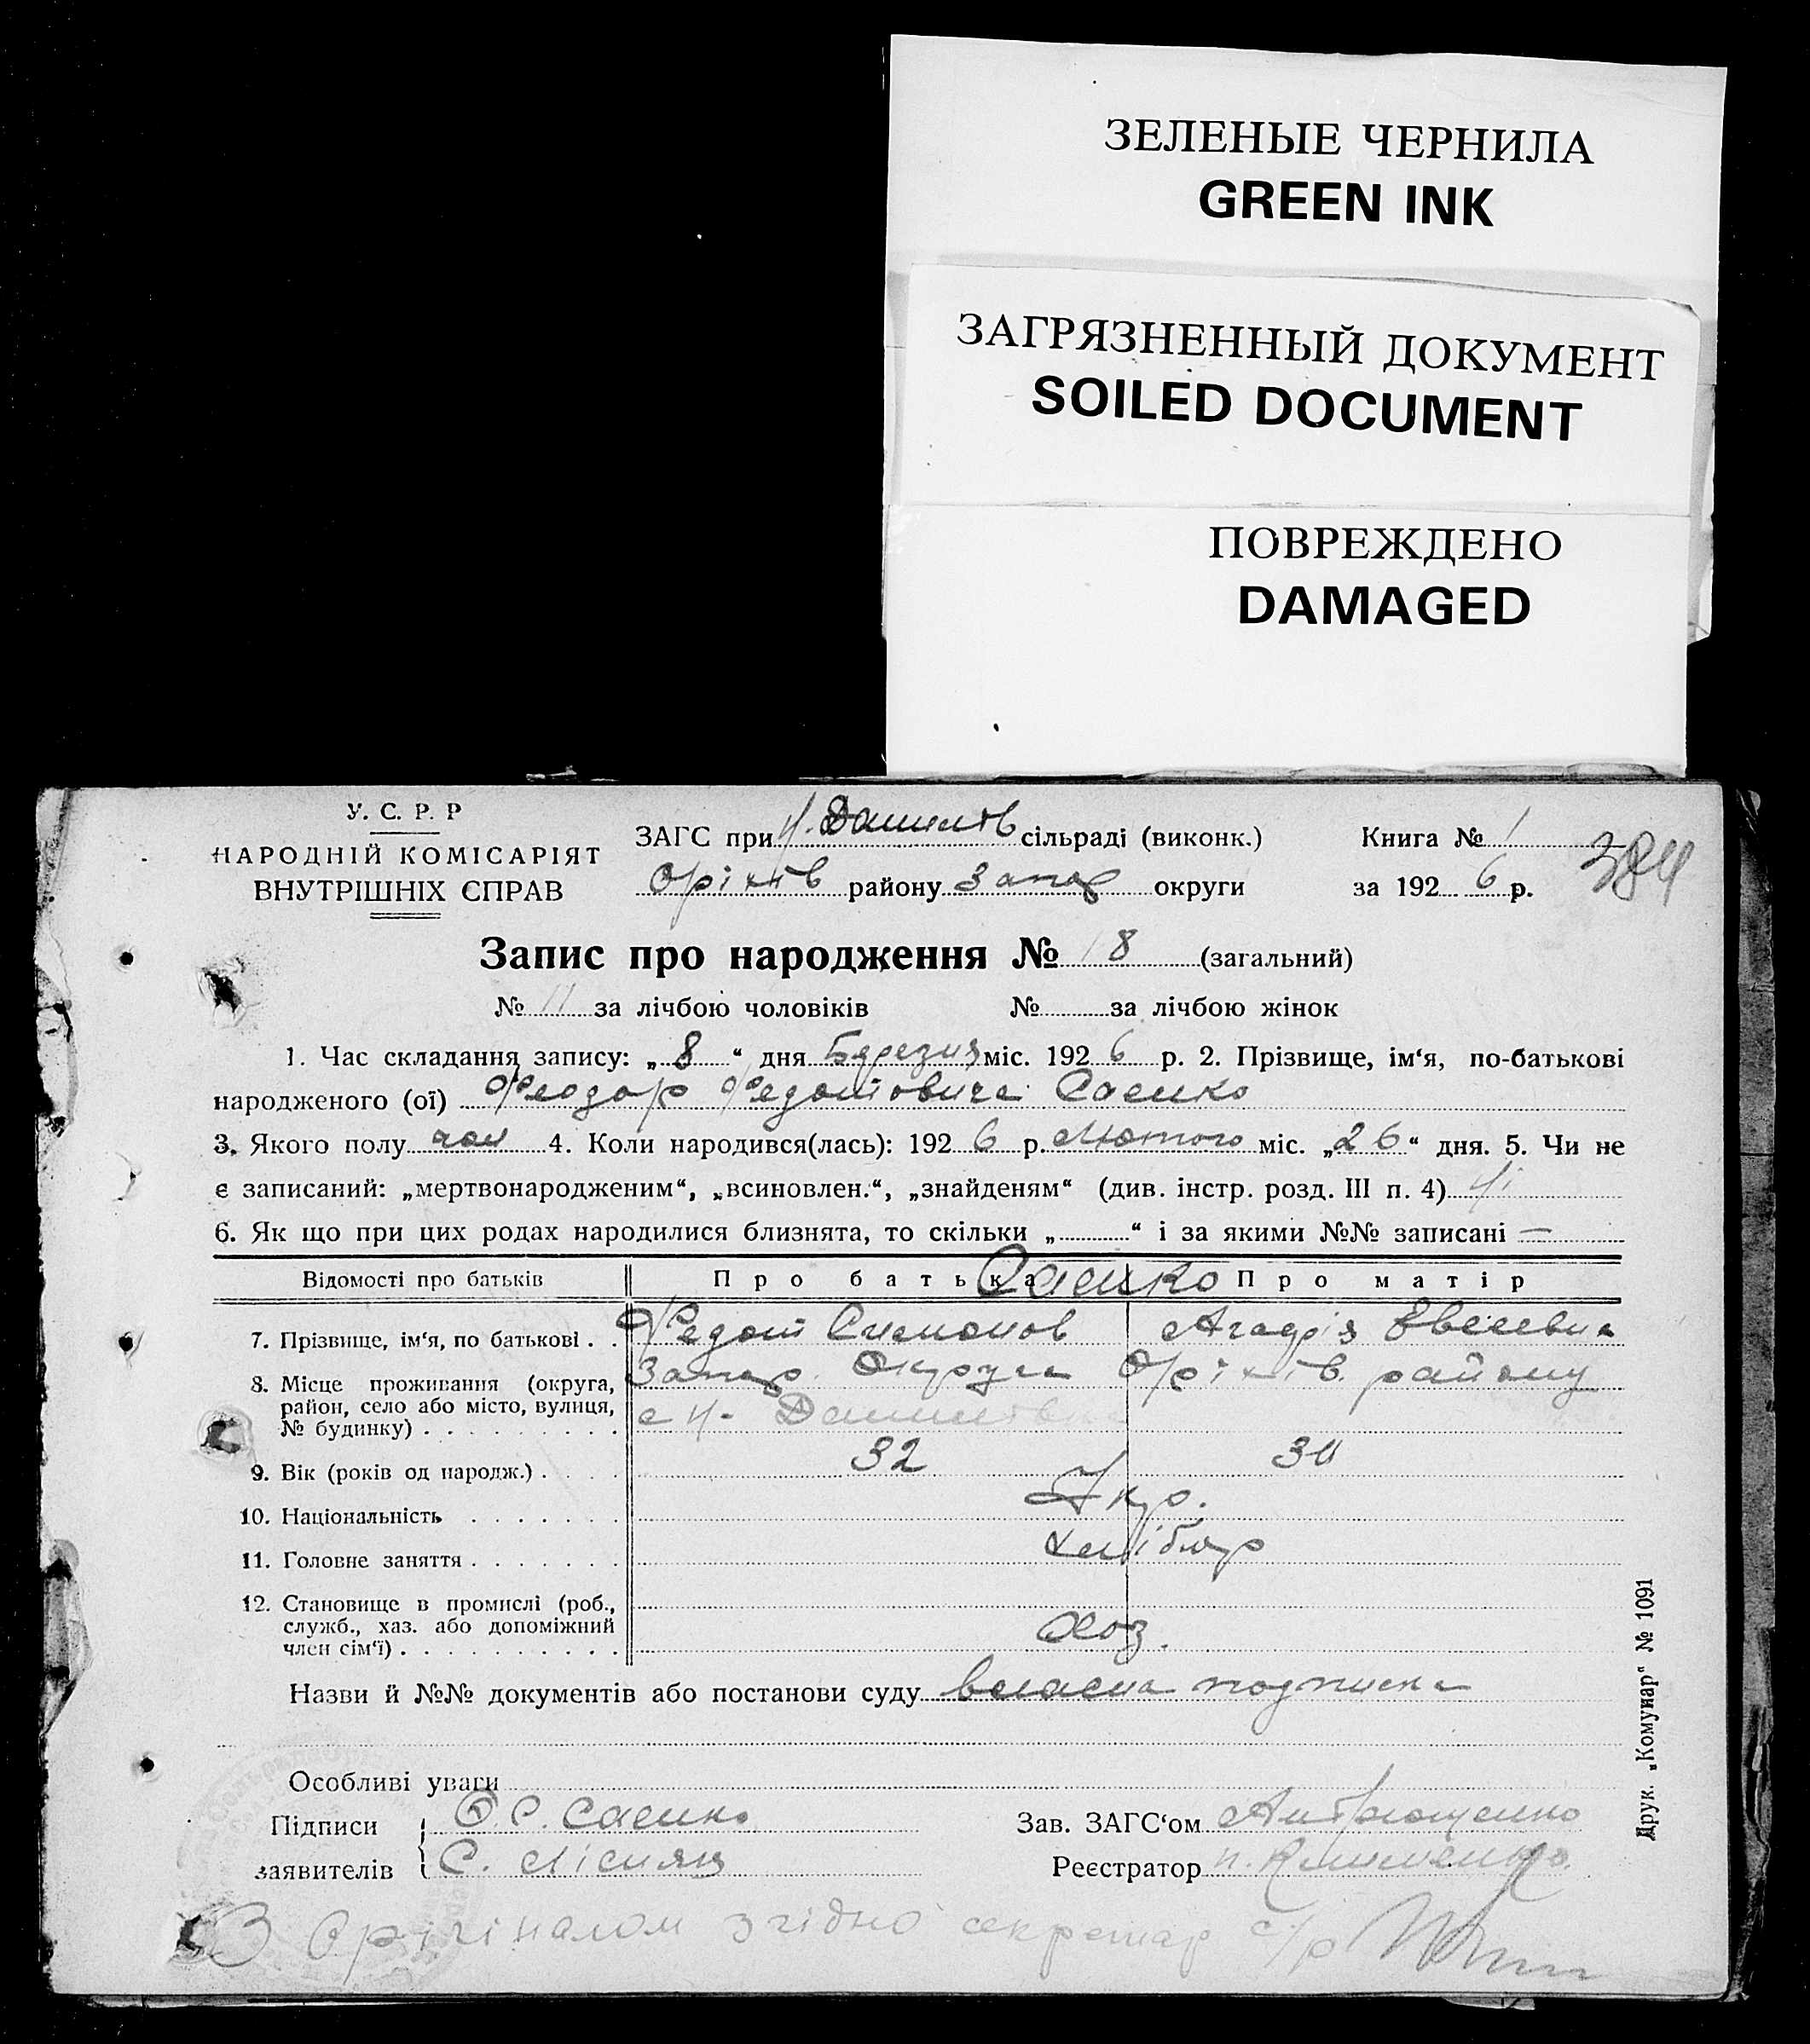 ЗЕЛЕНЫЕ ЧЕРНИЛА
GREEN INK
ЗАГРЯЗНЕННЫЙ ДОКУМЕНТ
SOILED DOCUMENT
ПОВРЕЖДЕНО
DAMAGED
У. С. Р. Р
НАРОДНІЙ КОМІСАРІЯТ
ВНУТРІШНІХ СПРАВ
ЗАГС при Н. Данилів сільраді (виконк.)
Оріхів району Запор округи
Книга № 1
за 192 6 р.
384
Запис про народження № 18 (загальний)
№ 11 за лічбою чоловіків № за лічбою жінок
1. Час складання запису: „ 8 “ дня Березня міс. 192 6 р. 2. Прізвище, ім‘я, по-батькові
народженого (ої) Феодор Федотовича Саєнко
3. Якого полу чол 4. Коли народився(лась): 192 6 р. Лютого міс. „26“ дня. 5. Чи не
є записаний: „мертвонародженим“, „всиновлен.“, „знайденям“ (див. інстр. розд. III п. 4) Ні
6. Як що при цих родах народилися близнята, то скільки „ “ і за якими №№ записані —
Відомості про батьків Про батька Саенко Про матір
7. Прізвище, ім‘я, по батькові . . Федот Симонов Агафія Евсеевна
8. Місце проживання (округа, Запор. Округа Оріхів. району
район, село або місто, вулиця, с Н- Данилівка
№ будинку) . . . . . . . . .
9. Вік (років од народж.) . . . . 32 30
10. Національність . . . . . . . Укр.
11. Головне заняття . . . . . . . Хлібор
12. Становище в промислі (роб.,
служб., хаз. або допоміжний Хоз.
член сім‘ї) . . . . . . . . . .
Назви й №№ документів або постанови суду власна подписка
Особливі уваги
Підписи Ф. С. Саенко Зав. ЗАГС‘ом Антрощенко
заявителів С. Лісняк Реєстратор Н. Клименко
З Орігіналом згідно секретар с/р
Друк. „Комунар“ № 1091